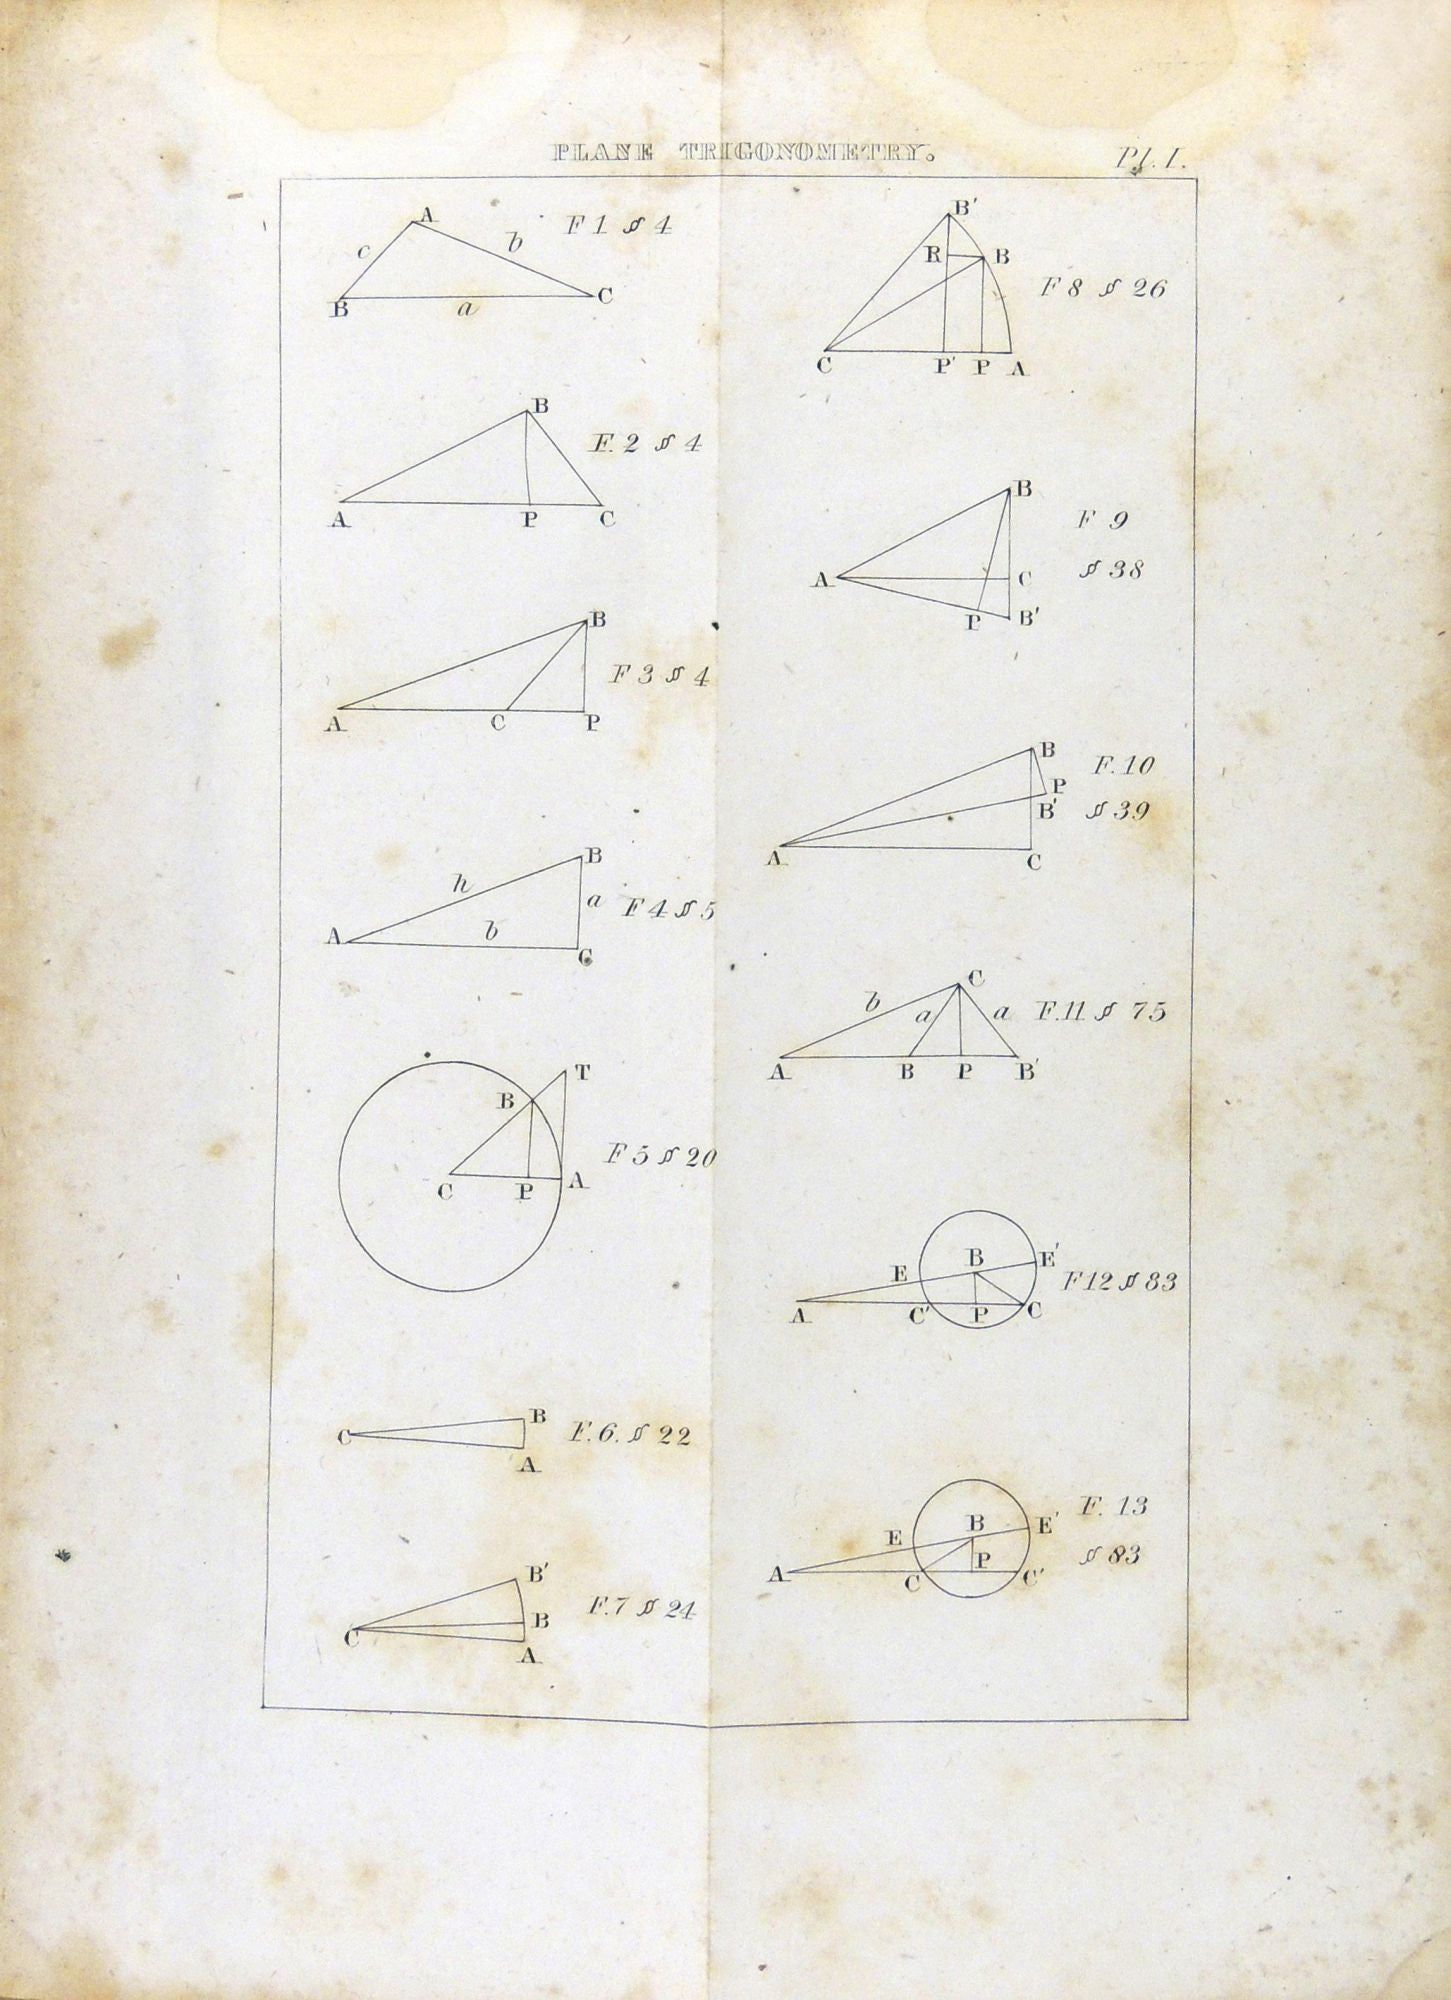 PLANE TRIGONOMETRY.
Pl. I.
A
c
b
F 1 § 4
B
a
C
B
F. 2 § 4
A
P
C
B
F 3 § 4
A
C
P
B
h
a
F 4 § 5
b
A
C
T
B
F 5 § 20
C
P
A
B
C
F. 6. § 22
A
B'
F. 7 § 24
B
C
A
B'
R
B
F 8 § 26
C
P'
P
A
B
F 9
§ 38
A
C
P
B'
B
F. 10
P
B'
§ 39
A
C
C
b
a
a
F. 11 § 75
A
B
P
B'
B
E'
E
F 12 § 83
A
C'
P
C
F. 13
B
E'
E
§ 83
P
A
C
C'